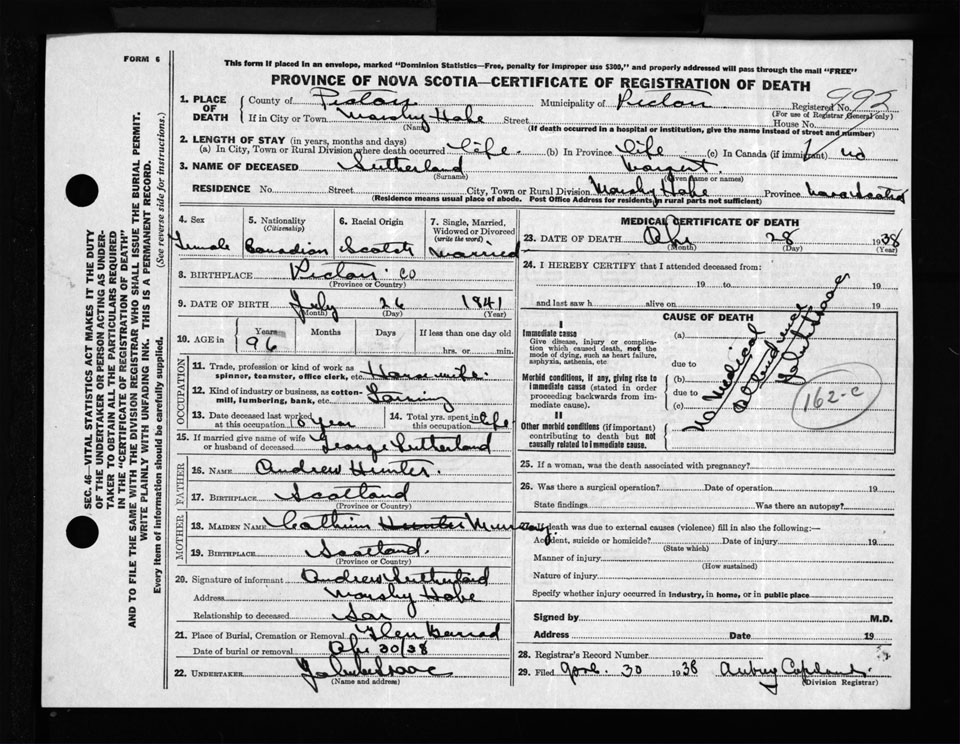 FORM 6
This form if placed in an envelope, marked "Dominion Statistics—Free, penalty for improper use $300," and properly addressed will pass through the mail "FREE"
PROVINCE OF NOVA SCOTIA—CERTIFICATE OF REGISTRATION OF DEATH
992
1. PLACE OF DEATH { County of Pictou Municipality of Pictou Registered No.
(For use of Registrar General only)
If in City or Town Marshy Hobe Street House No.
(Name) (If death occurred in a hospital or institution, give the name instead of street and number)
2. LENGTH OF STAY (in years, months and days)
(a) In City, Town or Rural Division where death occurred life. (b) In Province life (c) In Canada (if immigrant)
3. NAME OF DECEASED Sutherland Margret.
(Surname) (Given name or names)
RESIDENCE No. Street City, Town or Rural Division Marshy Hobe Province Nova Scotia
(Residence means usual place of abode. Post Office Address for residents in rural parts not sufficient)
4. Sex 5. Nationality 6. Racial Origin 7. Single, Married, Widowed or Divorced
(Citizenship) (write the word)
Female Canadian Scotch Married
8. BIRTHPLACE Pictou co
(Province or County)
9. DATE OF BIRTH July 26 1841
(Month) (Day) (Year)
10. AGE in { Years Months Days If less than one day old
96 hrs. or min.
OCCUPATION
11. Trade, profession or kind of work as spinner, teamster, office clerk, etc. Housewife.
12. Kind of industry or business, as cotton-mill, lumbering, bank, etc. Farming
13. Date deceased last worked at this occupation Year 14. Total yrs. spent in this occupation Life
15. If married give name of wife or husband of deceased George Sutherland
FATHER
16. NAME Andrew Hunter.
17. BIRTHPLACE Scotland
(Province or Country)
MOTHER
18. MAIDEN NAME Cathrin Hunter Murray.
19. BIRTHPLACE Scotland.
(Province or Country)
20. Signature of informant Andrew Sutherland
Address Marshy Hobe
Relationship to deceased Son
21. Place of Burial, Cremation or Removal Glen Garrad
Date of burial or removal Apr 30/38
22. UNDERTAKER John Isaac
(Name and address)
MEDICAL CERTIFICATE OF DEATH
23. DATE OF DEATH Apr 28 1938
(Month) (Day) (Year)
24. I HEREBY CERTIFY that I attended deceased from:
19 to 19
and last saw h alive on 19
CAUSE OF DEATH
I
Immediate cause (a)
Give disease, injury or complication which caused death, not the mode of dying, such as heart failure, asphyxia, asthenia, etc.
due to
Morbid conditions, if any, giving rise to immediate cause (stated in order proceeding backwards from immediate cause).
(b)
due to
(c)
II
Other morbid conditions (if important) contributing to death but not causally related to immediate cause.
No Medical
Attendance
John Isaac
162-c
25. If a woman, was the death associated with pregnancy?
26. Was there a surgical operation? Date of operation 19
State findings Was there an autopsy?
If death was due to external causes (violence) fill in also the following:—
Accident, suicide or homicide? Date of injury 19
(State which)
Manner of injury
(How sustained)
Nature of injury
Specify whether injury occurred in industry, in home, or in public place
Signed by M.D.
Address Date 19
28. Registrar's Record Number
29. Filed April 30 1938 Aubrey Copeland.
(Division Registrar)
SEC. 46—VITAL STATISTICS ACT MAKES IT THE DUTY
OF THE UNDERTAKER OR PERSON ACTING AS UNDER-
TAKER TO OBTAIN ALL THE PARTICULARS REQUIRED
IN THE "CERTIFICATE OF REGISTRATION OF DEATH"
AND TO FILE THE SAME WITH THE DIVISION REGISTRAR WHO SHALL ISSUE THE BURIAL PERMIT.
WRITE PLAINLY WITH UNFADING INK. THIS IS A PERMANENT RECORD.
Every item of information should be carefully supplied. (See reverse side for instructions.)